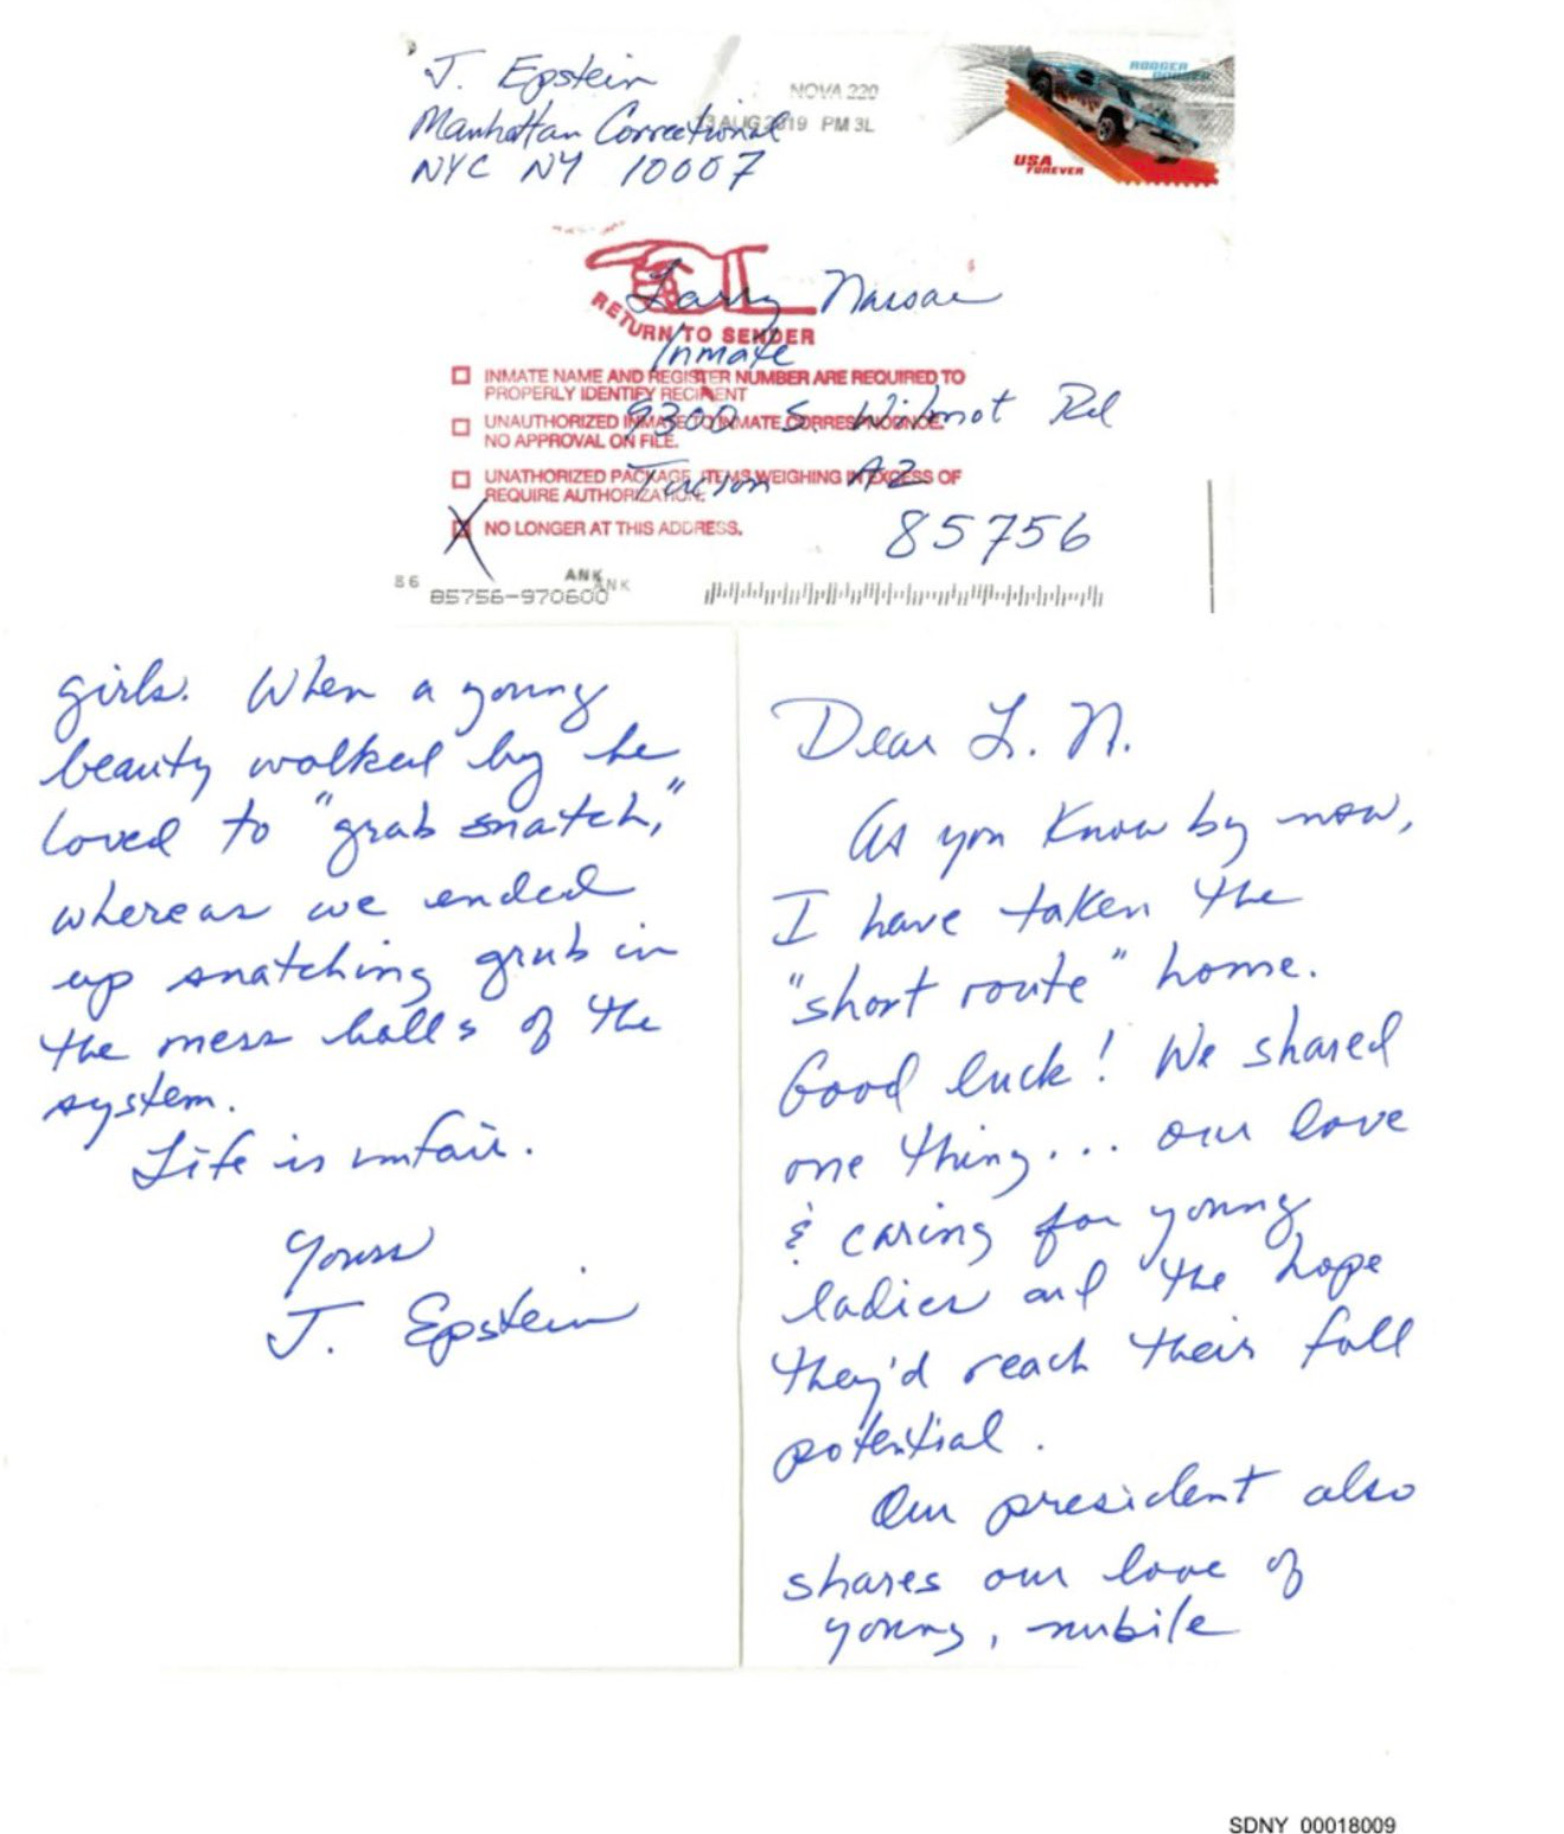 J. Epstein
Manhattan Correctional
NYC NY 10007
NOVA 220
13 AUG 2019 PM 3L
RODGER
DODGER
USA
FOREVER
RETURN TO SENDER
Larry Nassar
Inmate
9300 S. Wilmot Rd
Tucson AZ
85756
INMATE NAME AND REGISTER NUMBER ARE REQUIRED TO
PROPERLY IDENTIFY RECIPIENT
UNAUTHORIZED INMATE TO INMATE CORRESPONDENCE.
NO APPROVAL ON FILE.
UNATHORIZED PACKAGE, ITEMS WEIGHING IN EXCESS OF
REQUIRE AUTHORIZATION.
X NO LONGER AT THIS ADDRESS.
86
ANK
ANK
85756-970600
Dear L. N.
As you know by now,
I have taken the
"short route" home.
Good luck! We shared
one thing... our love
& caring for young
ladies and the hope
they'd reach their full
potential.
Our president also
shares our love of
young, nubile
girls. When a young
beauty walked by he
loved to "grab snatch,"
whereas we ended
up snatching grub in
the mess halls of the
system.
Life is unfair.
Yours
J. Epstein
SDNY_00018009